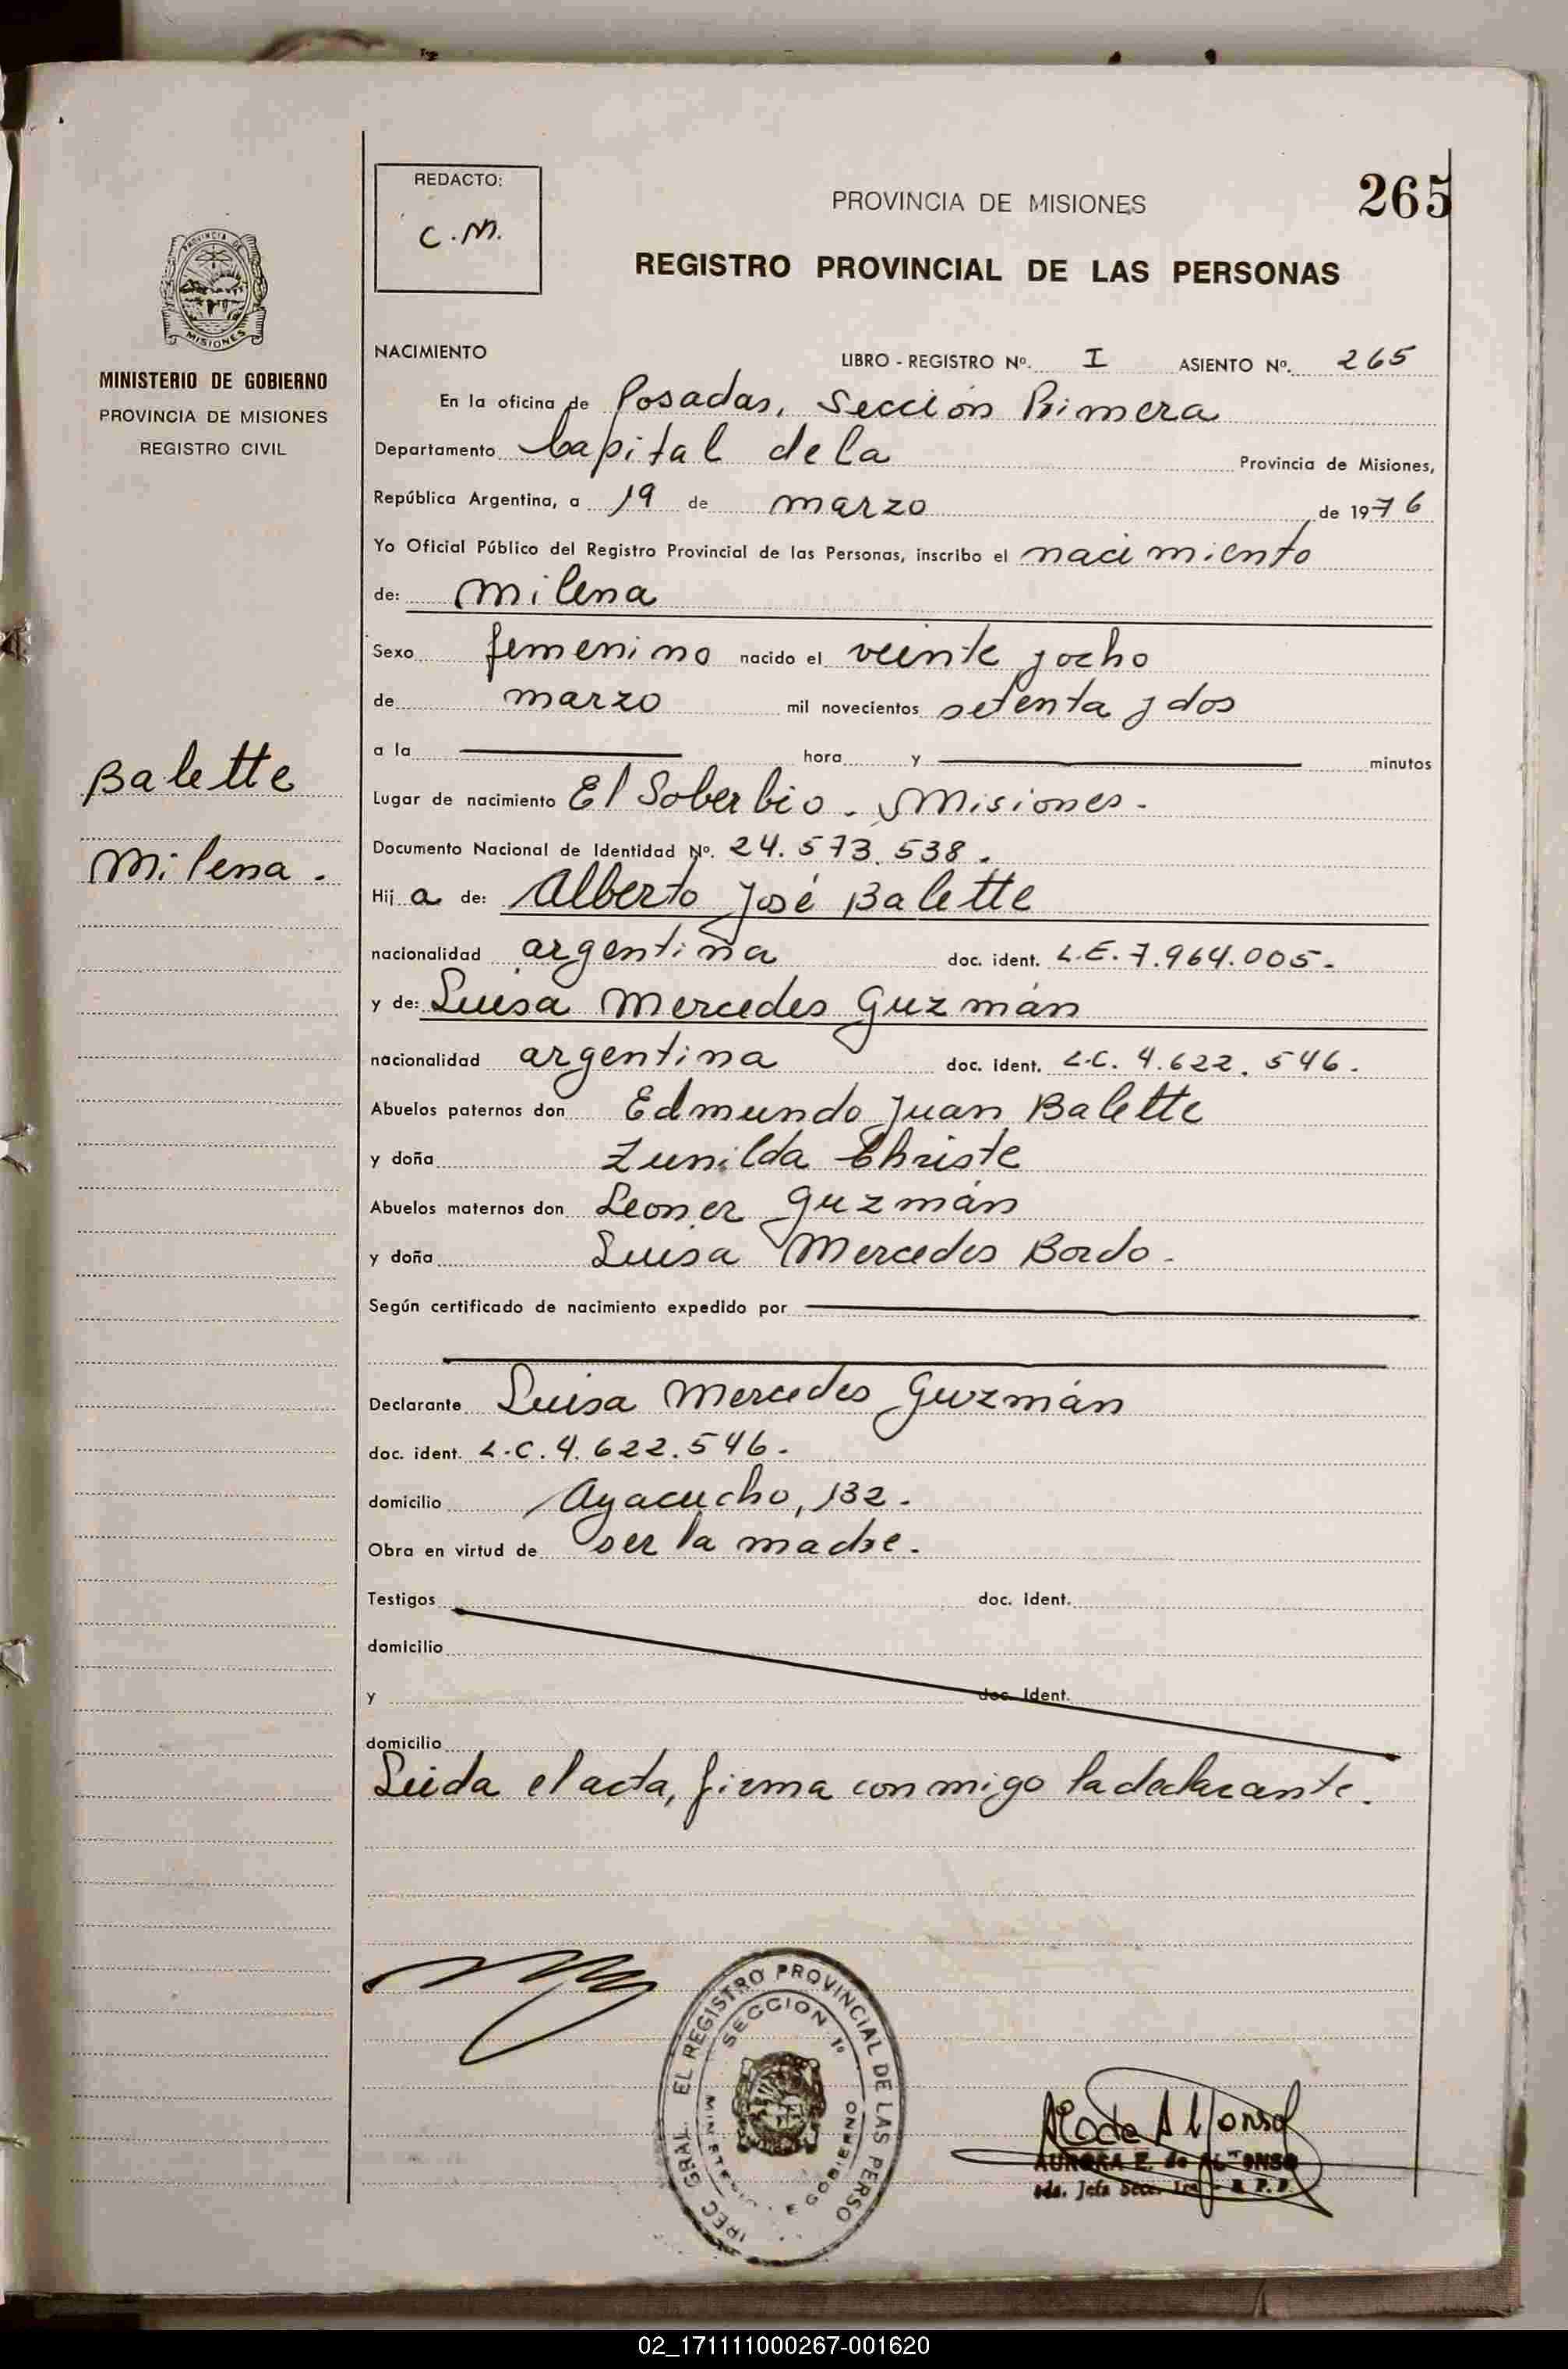 REDACTO:
C.M.
PROVINCIA DE MISIONES
265
REGISTRO PROVINCIAL DE LAS PERSONAS
PROVINCIA DE
MISIONES
MINISTERIO DE GOBIERNO
PROVINCIA DE MISIONES
REGISTRO CIVIL
NACIMIENTO LIBRO - REGISTRO Nº. I ASIENTO Nº. 265
En la oficina de Posadas, Sección Primera
Departamento Capital de la Provincia de Misiones,
República Argentina, a 19 de marzo de 1976
Yo Oficial Público del Registro Provincial de las Personas, inscribo el nacimiento
de: Milena
Sexo femenino nacido el veinte y ocho
de marzo mil novecientos setenta y dos
a la hora y minutos
Balette
Milena.
Lugar de nacimiento El Soberbio. Misiones.
Documento Nacional de Identidad Nº. 24.573.538.
Hij a de: Alberto José Balette
nacionalidad argentina doc. ident. L.E. 7.964.005.
y de: Luisa Mercedes Guzmán
nacionalidad argentina doc. ident. L.C. 4.622.546.
Abuelos paternos don Edmundo Juan Balette
y doña Zunilda Christe
Abuelos maternos don Leoner Guzmán
y doña Luisa Mercedes Bordo.
Según certificado de nacimiento expedido por
Declarante Luisa Mercedes Guzmán
doc. ident. L.C. 4.622.546.
domicilio Ayacucho, 132.
Obra en virtud de ser la madre.
Testigos doc. ident.
domicilio
y doc. ident.
domicilio
Leida el acta, firma conmigo la declarante.
EL REGISTRO PROVINCIAL DE LAS PERSO
SECCION 1º
GRAL.
GOBIERNO
A E de Alfonso
AURORA E. de ALFONSO
Jefa Secc.
02_171111000267-001620